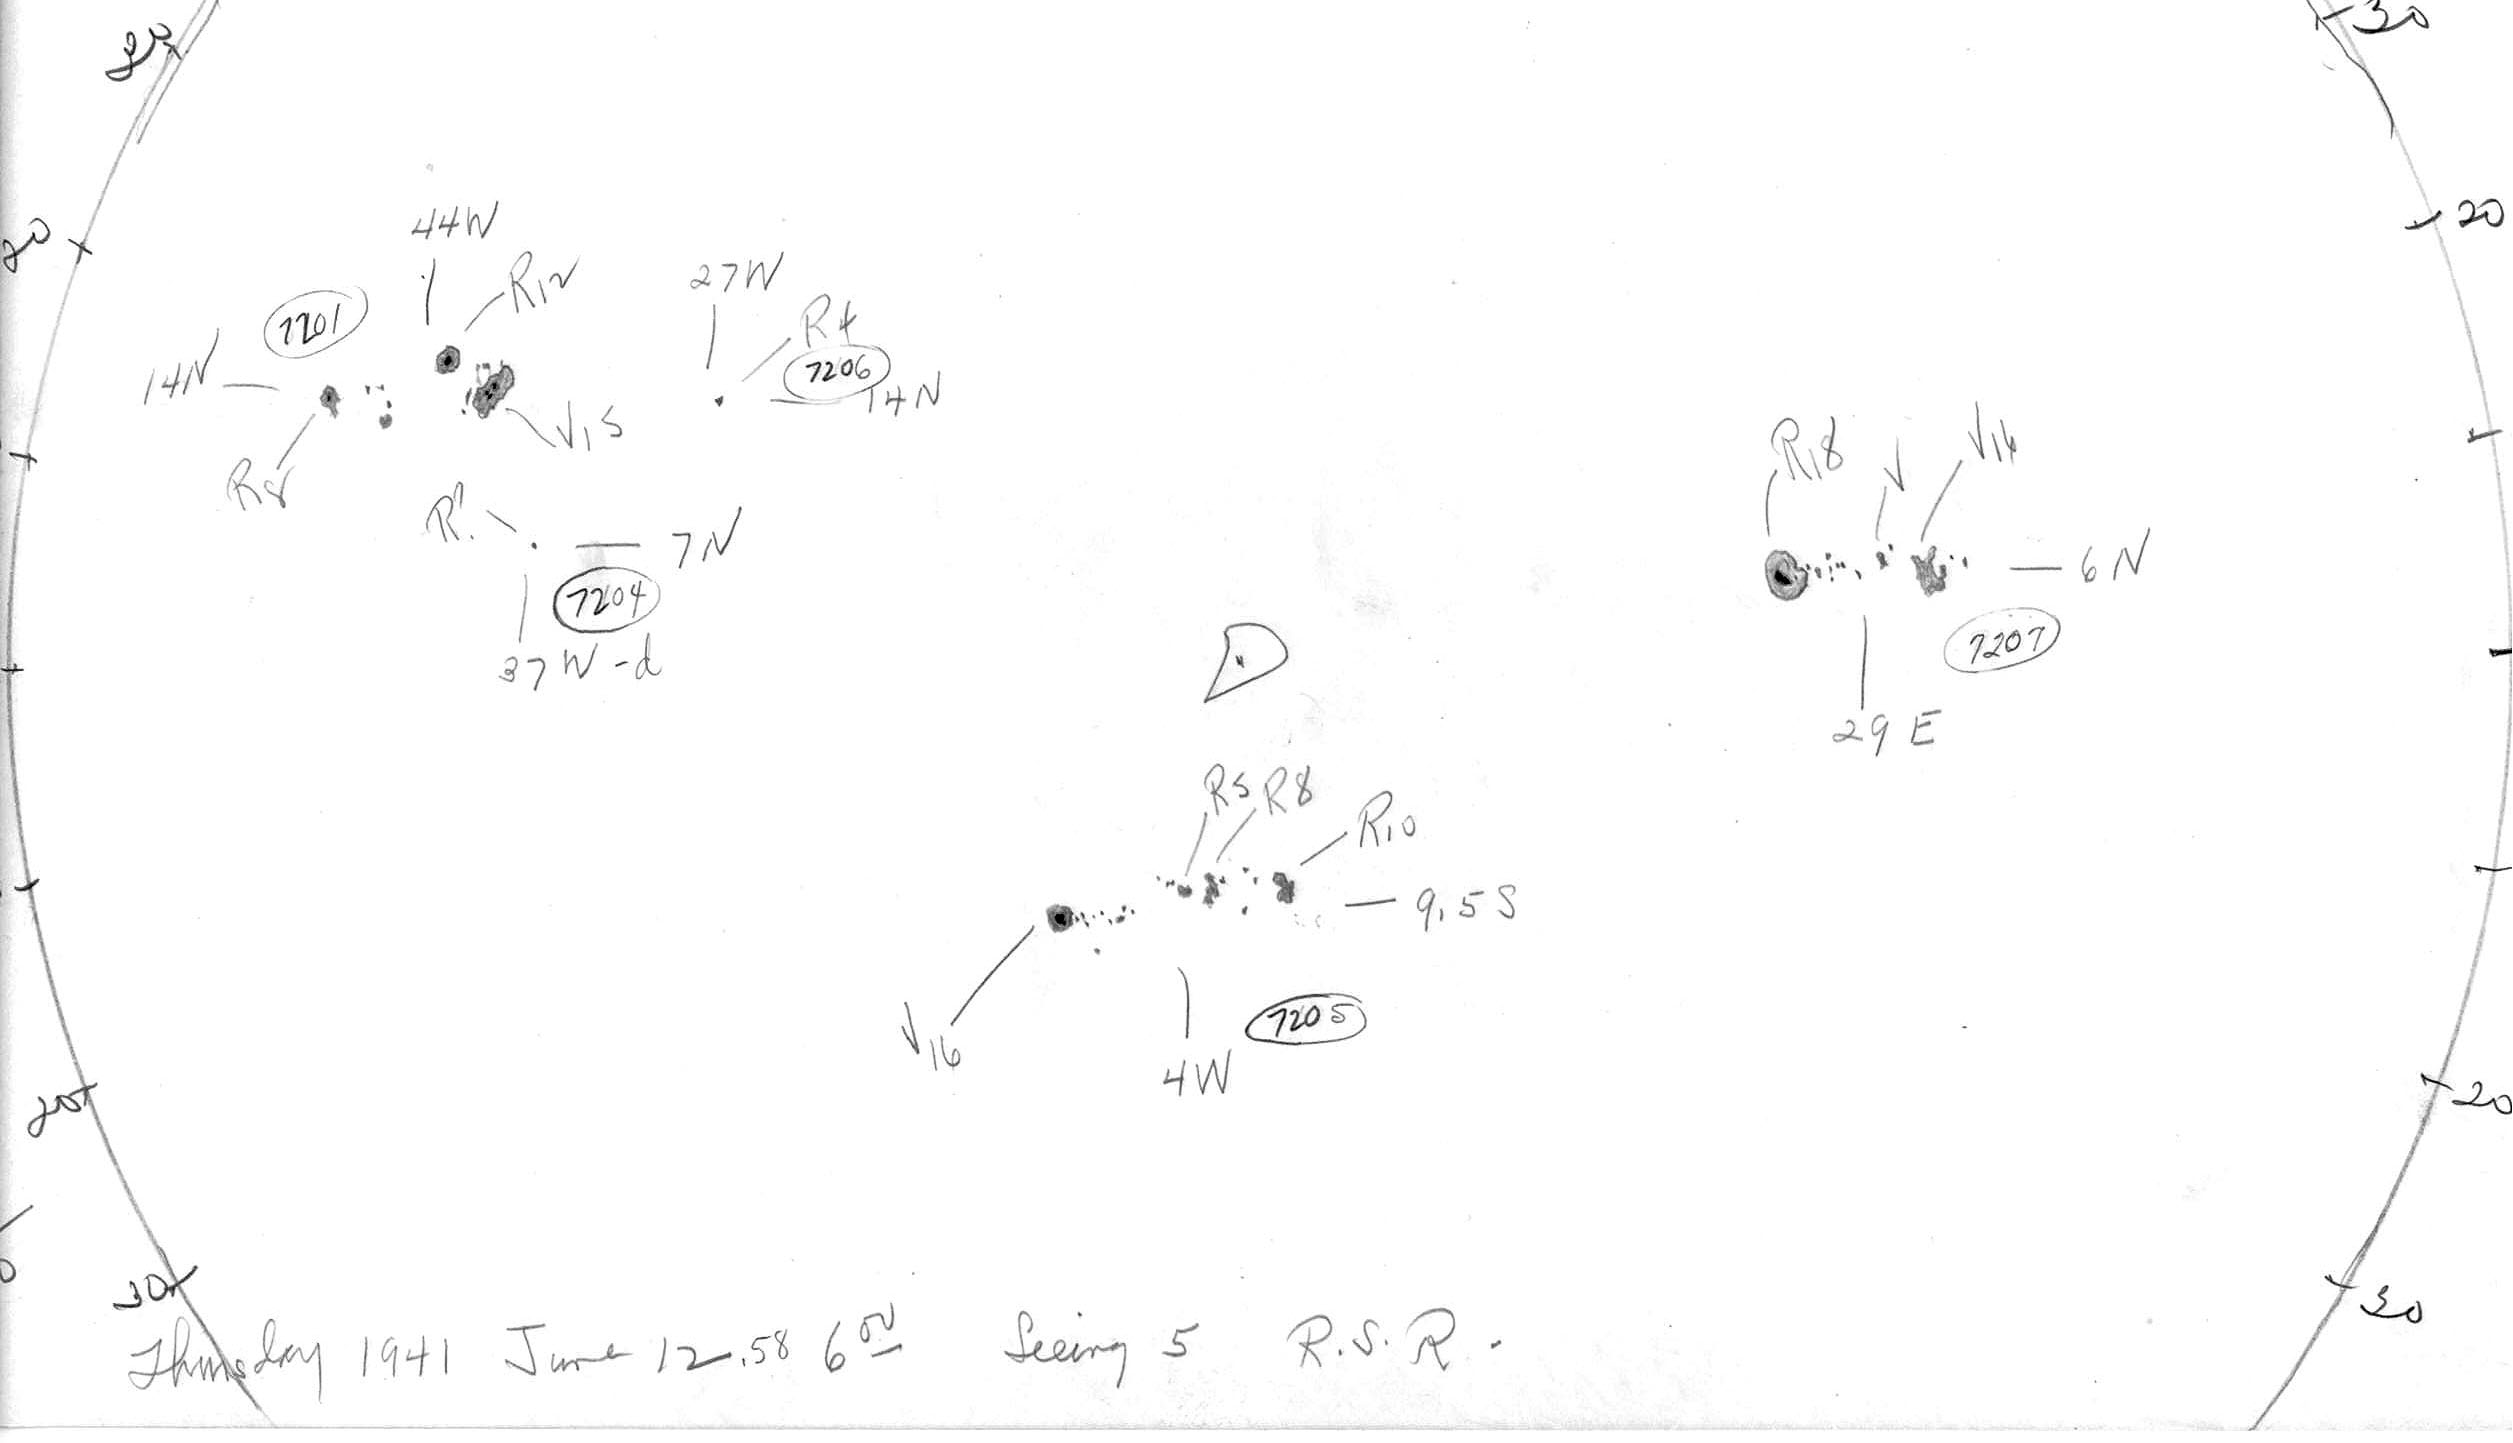 30
30
20
20
44W
R12
27W
R4
7201
7206
14N
14N
V15
R18
V
V14
R8
R?
7N
6N
7204
7207
37W-d
29E
R5 R8
R10
9.5S
V16
7205
4W
20
20
30
30
Thursday 1941 June 12.58 6 00 Seeing 5 R.S.R.